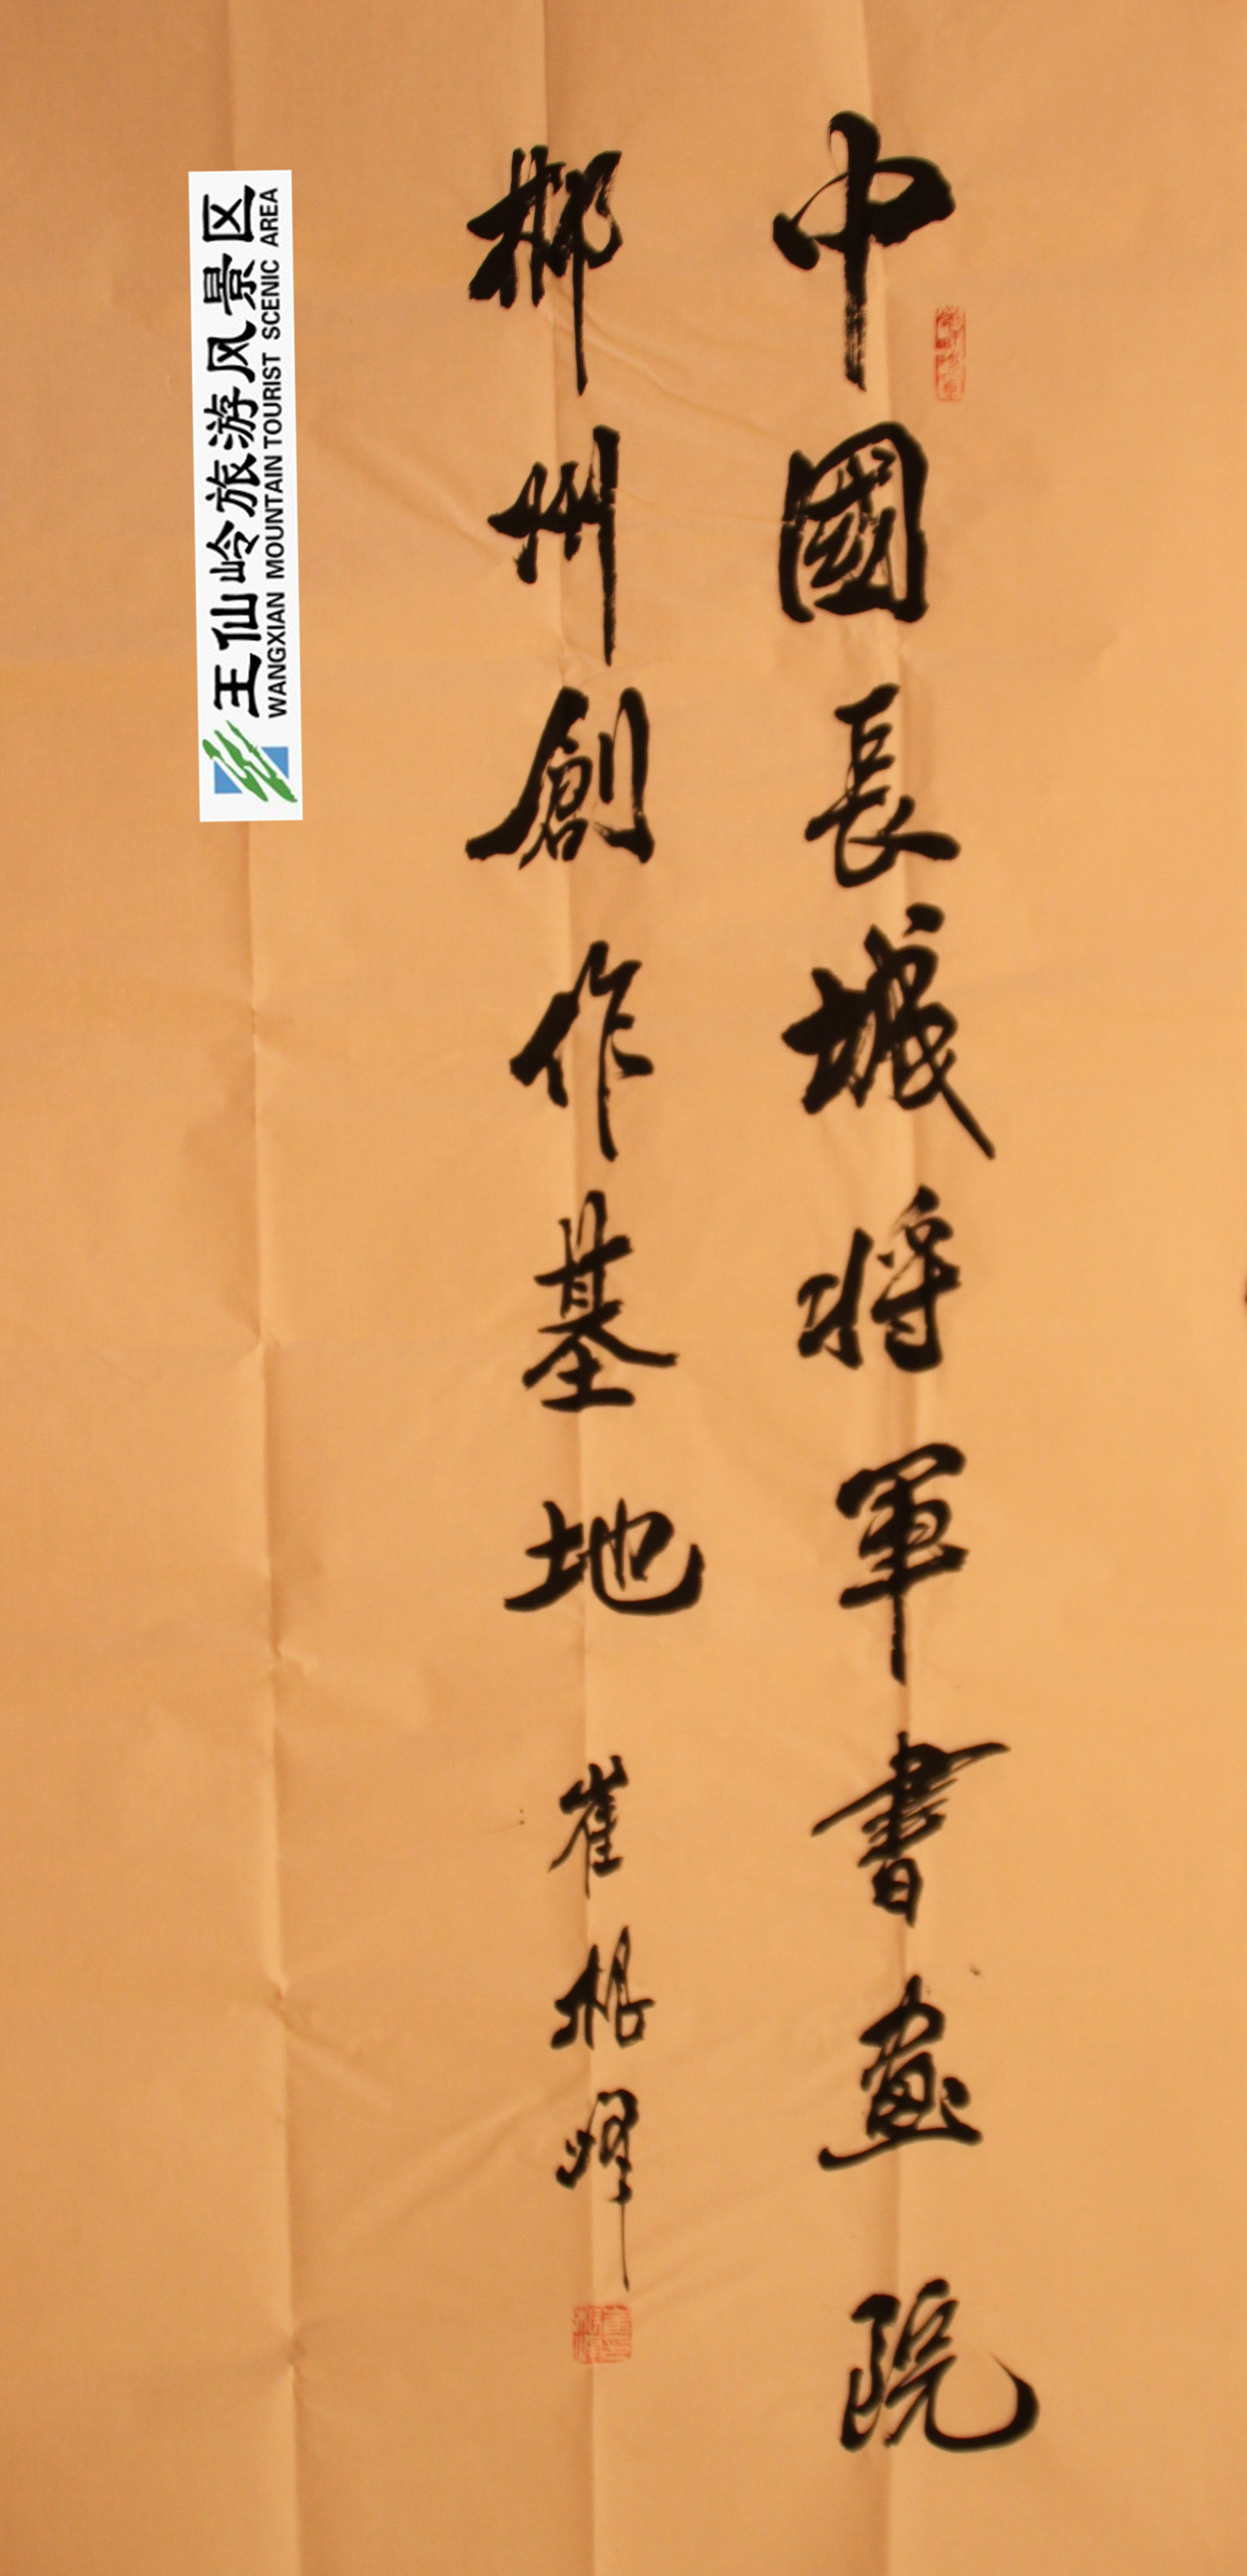 中國長城将軍書画院
郴州創作基地
崔根
王仙岭旅游风景区
WANGXIAN MOUNTAIN TOURIST SCENIC AREA